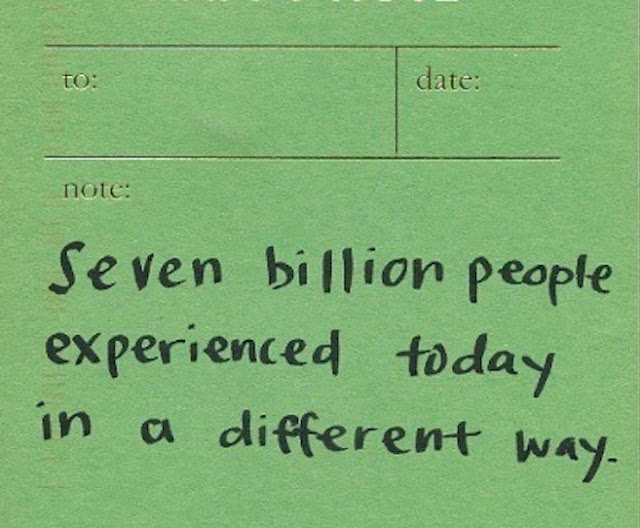 to: date:
note:
Seven billion people
experienced today
in a different way.